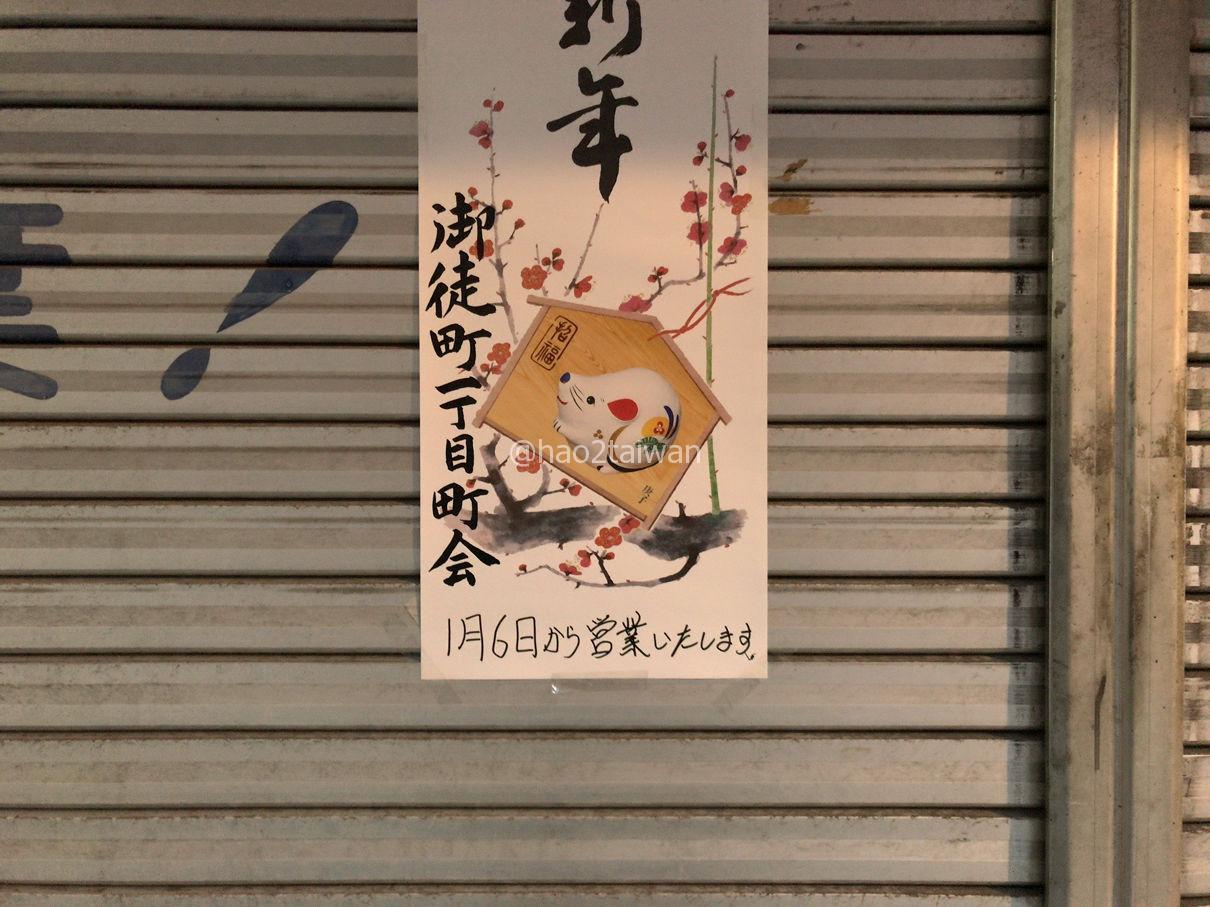 新年
御徒町一丁目町会
招福
庚子
@hao2taiwan
1月6日から営業いたします。